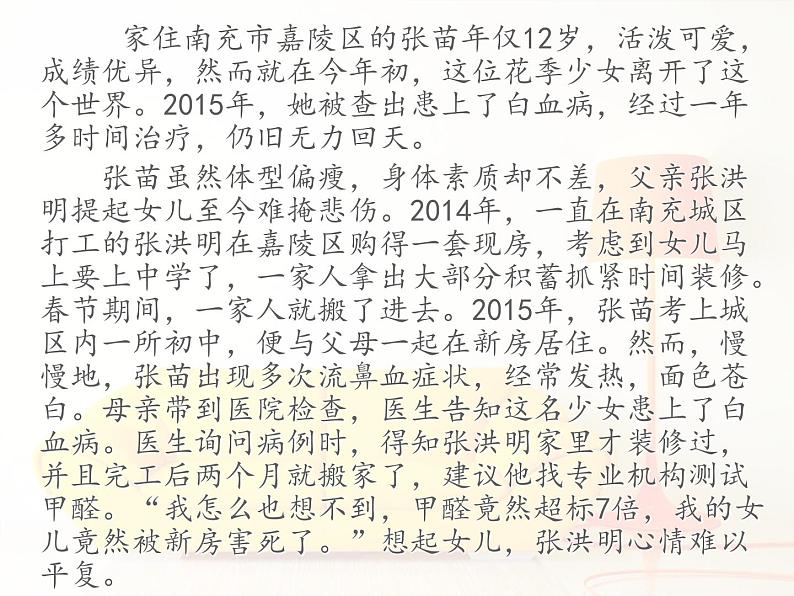 家住南充市嘉陵区的张苗年仅12岁，活泼可爱，
成绩优异，然而就在今年初，这位花季少女离开了这
个世界。2015年，她被查出患上了白血病，经过一年
多时间治疗，仍旧无力回天。
张苗虽然体型偏瘦，身体素质却不差，父亲张洪
明提起女儿至今难掩悲伤。2014年，一直在南充城区
打工的张洪明在嘉陵区购得一套现房，考虑到女儿马
上要上中学了，一家人拿出大部分积蓄抓紧时间装修。
春节期间，一家人就搬了进去。2015年，张苗考上城
区内一所初中，便与父母一起在新房居住。然而，慢
慢地，张苗出现多次流鼻血症状，经常发热，面色苍
白。母亲带到医院检查，医生告知这名少女患上了白
血病。医生询问病例时，得知张洪明家里才装修过，
并且完工后两个月就搬家了，建议他找专业机构测试
甲醛。“我怎么也想不到，甲醛竟然超标7倍，我的女
儿竟然被新房害死了。”想起女儿，张洪明心情难以
平复。